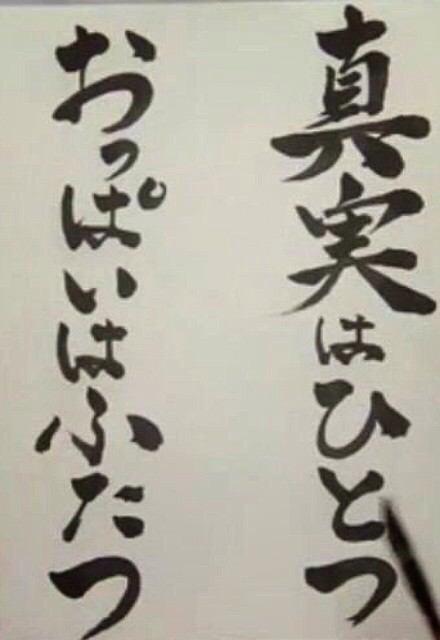 真実はひとつ
おっぱいはふたつ